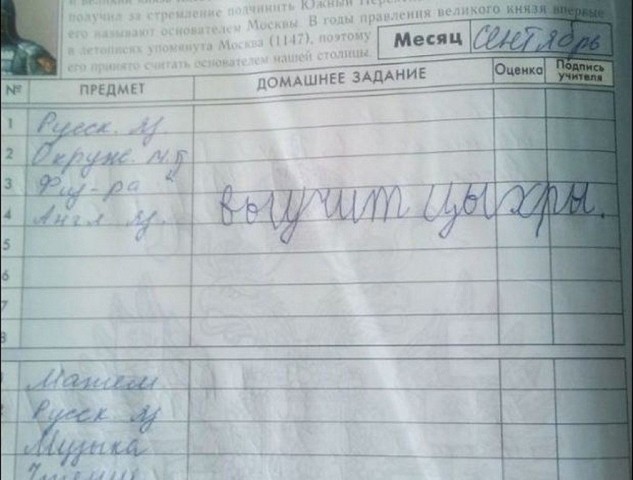 получил за стремление подчинить Южный
его называют основателем Москвы. В годы правления великого князя впервые
в летописях упомянута Москва (1147), поэтому
его принято считать основателем нашей столицы.
Месяц Сентябрь
№ ПРЕДМЕТ ДОМАШНЕЕ ЗАДАНИЕ Оценка Подпись учителя
1 Русск. яз
2 Окруж. м.
3 Физ-ра
4 Англ яз. выучит цыхры.
5
6
7
8
Матем
Русск яз
Музыка
Чтение